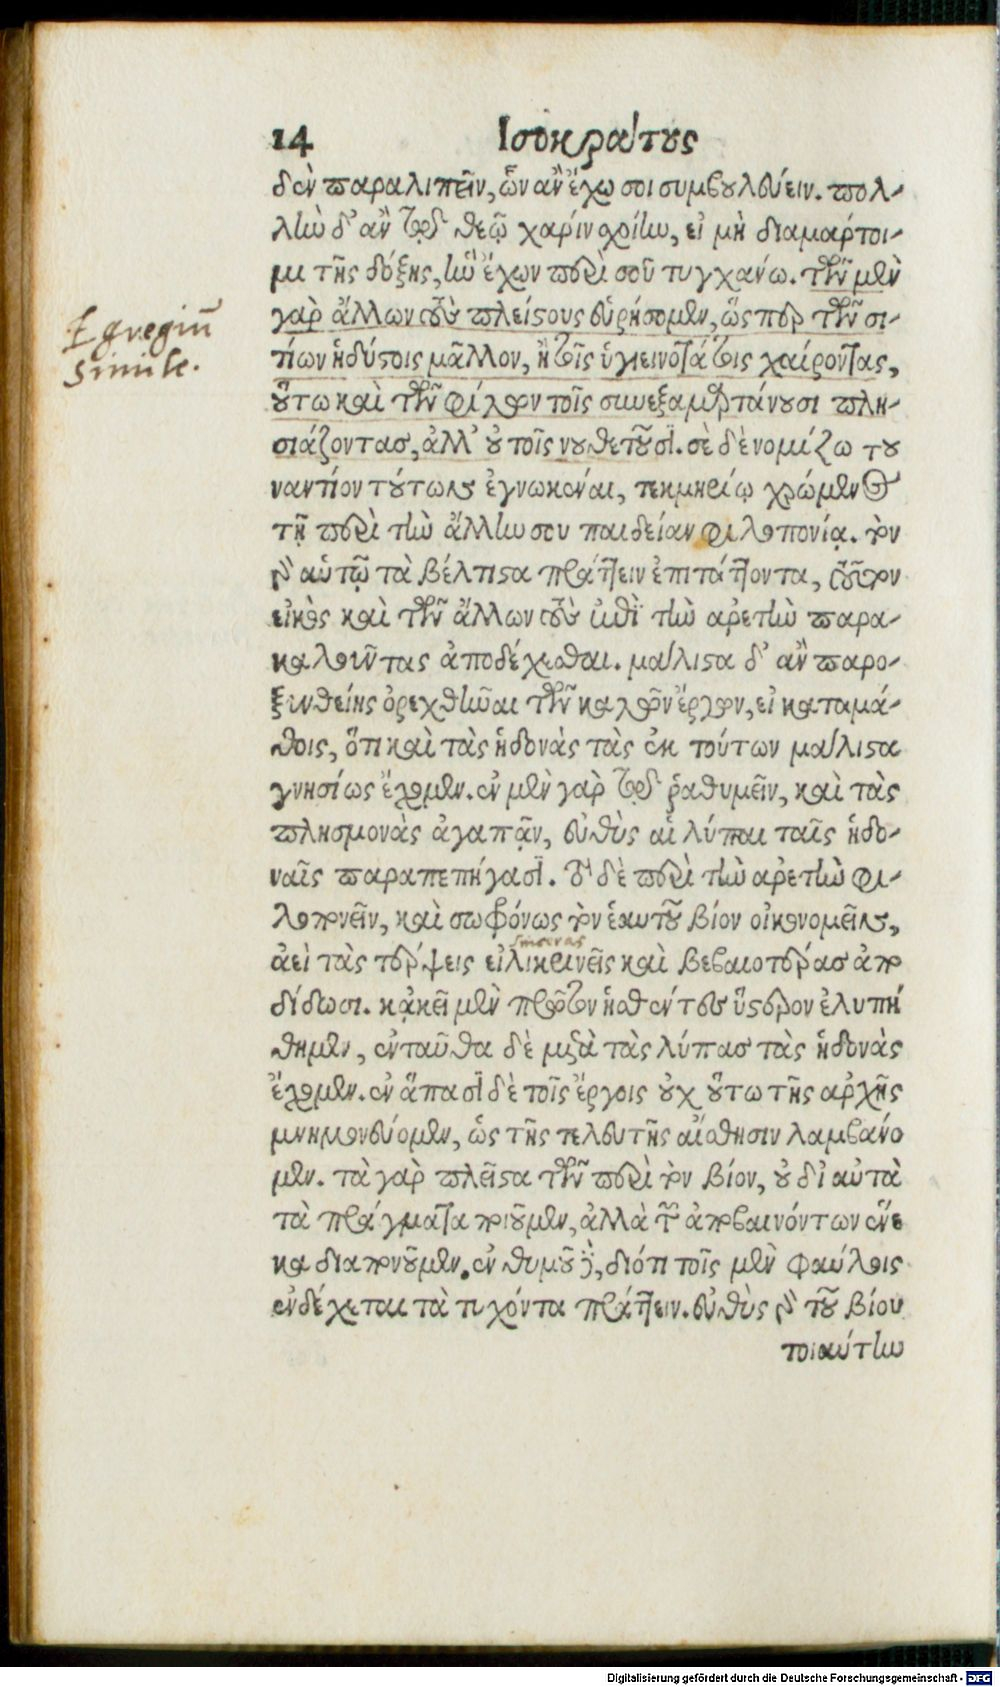 14 Ισοκράτους
δὲν παραλιπεῖν, ὧν ἂν ἔχω σοι συμβουλεύειν. πολ-
λὴν δ' ἂν τῷ θεῷ χάριν σχοίην, εἰ μὴ διαμάρτοι-
μι τῆς δόξης, ἣν ἔχων περὶ σοῦ τυγχάνω. τῶν μὲν
γὰρ ἄλλων τοὺς πλείστους εὑρήσομεν, ὥσπερ τῶν σι-
τίων ἡδίστοις μᾶλλον, ἢ τοῖς ὑγιεινοτάτοις χαίροντας,
οὕτω καὶ τῶν φίλων τοῖς συνεξαμαρτάνουσι πλη-
σιάζοντας, ἀλλ' οὐ τοῖς νουθετοῦσι. σὲ δὲ νομίζω του
ναντίον τούτων ἐγνωκέναι, τεκμηρίῳ χρώμενος
τῇ περὶ τὴν ἄλλην σου παιδείαν φιλοπονίᾳ. τὸν
γὰρ αὑτῷ τὰ βέλτιστα πράττειν ἐπιτάττοντα, τοῦτον
εἰκὸς καὶ τῶν ἄλλων τοὺς ἐπὶ τὴν ἀρετὴν παρα-
καλοῦντας ἀποδέχεσθαι. μάλιστα δ' ἂν παρο-
ξυνθείης ὀρεχθῆναι τῶν καλῶν ἔργων, εἰ καταμά-
θοις, ὅτι καὶ τὰς ἡδονὰς τὰς ἐκ τούτων μάλιστα
γνησίως ἔχομεν. ἐν μὲν γὰρ τῷ ῥαθυμεῖν, καὶ τὰς
πλησμονὰς ἀγαπᾷν, εὐθὺς αἱ λύπαι ταῖς ἡδο-
ναῖς παραπεπήγασι. τὸ δὲ περὶ τὴν ἀρετὴν φι-
λοπονεῖν, καὶ σωφρόνως τὸν ἑαυτοῦ βίον οἰκονομεῖν,
sinceras
ἀεὶ τὰς τέρψεις εἰλικρινεῖς καὶ βεβαιοτέρας ἀπο
δίδωσι. κᾀκεῖ μὲν πρῶτον ἡσθέντες ὕστερον ἐλυπή
θημεν, ἐνταῦθα δὲ μετὰ τὰς λύπας τὰς ἡδονὰς
ἔχομεν. ἐν ἅπασι δὲ τοῖς ἔργοις οὐχ οὕτω τῆς ἀρχῆς
μνημονεύομεν, ὡς τῆς τελευτῆς αἴσθησιν λαμβάνο
μεν. τὰ γὰρ πλεῖστα τῶν περὶ τὸν βίον, οὐ δι' αὐτὰ
τὰ πράγματα ποιοῦμεν, ἀλλὰ τῶν ἀποβαινόντων ἕνε
κα διαπονοῦμεν. ἐνθυμοῦ δὲ, διότι τοῖς μὲν φαύλοις
ἐνδέχεται τὰ τυχόντα πράττειν. εὐθὺς γὰρ τοῦ βίου
τοιαύτην
Egregiū
Simile.
Digitalisierung gefördert durch die Deutsche Forschungsgemeinschaft - DFG